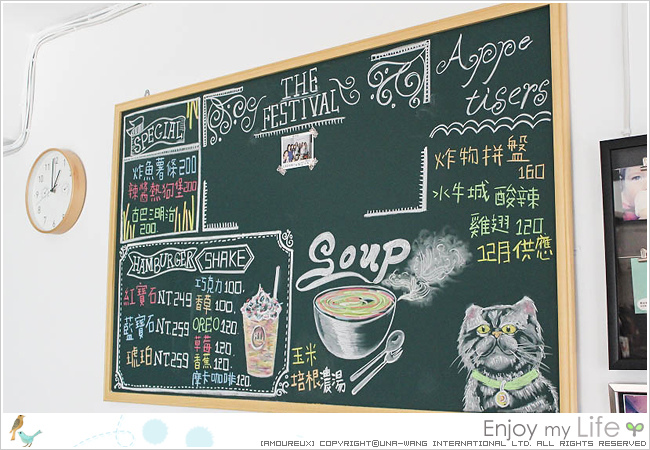 SPECIAL
炸魚薯條200
辣醬熱狗堡200
古巴三明治
200.
THE
FESTIVAL
Appe
tisers
炸物拼盤
160
水牛城 酸辣
雞翅 120.
12月供應
HAMBURGER SHAKE
紅寶石NT.249
藍寶石NT.259
琥珀NT.259
巧克力100.
香草100.
OREO120
草莓120.
香蕉120.
摩卡咖啡120.
Soup
玉米
培根濃湯
Enjoy my Life
[AMOUREUX] COPYRIGHT©UNA-WANG INTERNATIONAL LTD. ALL RIGHTS RESERVED